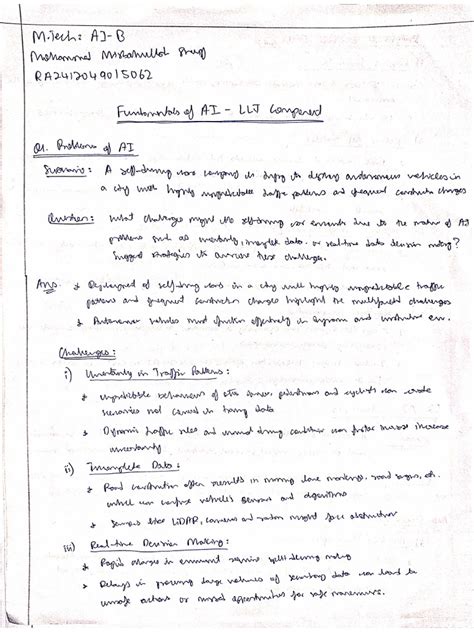 M.Tech: AI-B
Mohammad
RA2412049015062
Fundamentals of AI - LLT
Q1. Problems of AI
Scenario: A self-driving cars company is trying to deploy autonomous vehicles in
a city with highly unpredictable traffic patterns and frequent construction changes
Question: What challenges might the self-driving car encounter due to the nature of AI
problems such as uncertainty, incomplete data, or real-time data decision making?
Suggest strategies to overcome these challenges.
Ans. Deployment of self-driving cars in a city with highly unpredictable traffic
patterns and frequent construction changes highlight the multifaceted challenges
Autonomous vehicles must function effectively in dynamic and
Challenges:
i) Uncertainty in Traffic Patterns:
unpredictable behaviours of other drivers, pedestrians and cyclists can create
scenarios not covered in training data
Dynamic traffic rules and driving conditions can further increase
uncertainty
ii) Incomplete Data:
Road construction often results in missing lane markings, road signs, etc.
which can confuse vehicle's sensors and algorithms
Sensors like LiDAR, cameras and radar might face obstruction
iii) Real-time Decision Making:
Rapid changes in environment require split decision making
Delays in processing large volumes of sensory data can lead to
unsafe actions or missed opportunities for safe maneuvers.